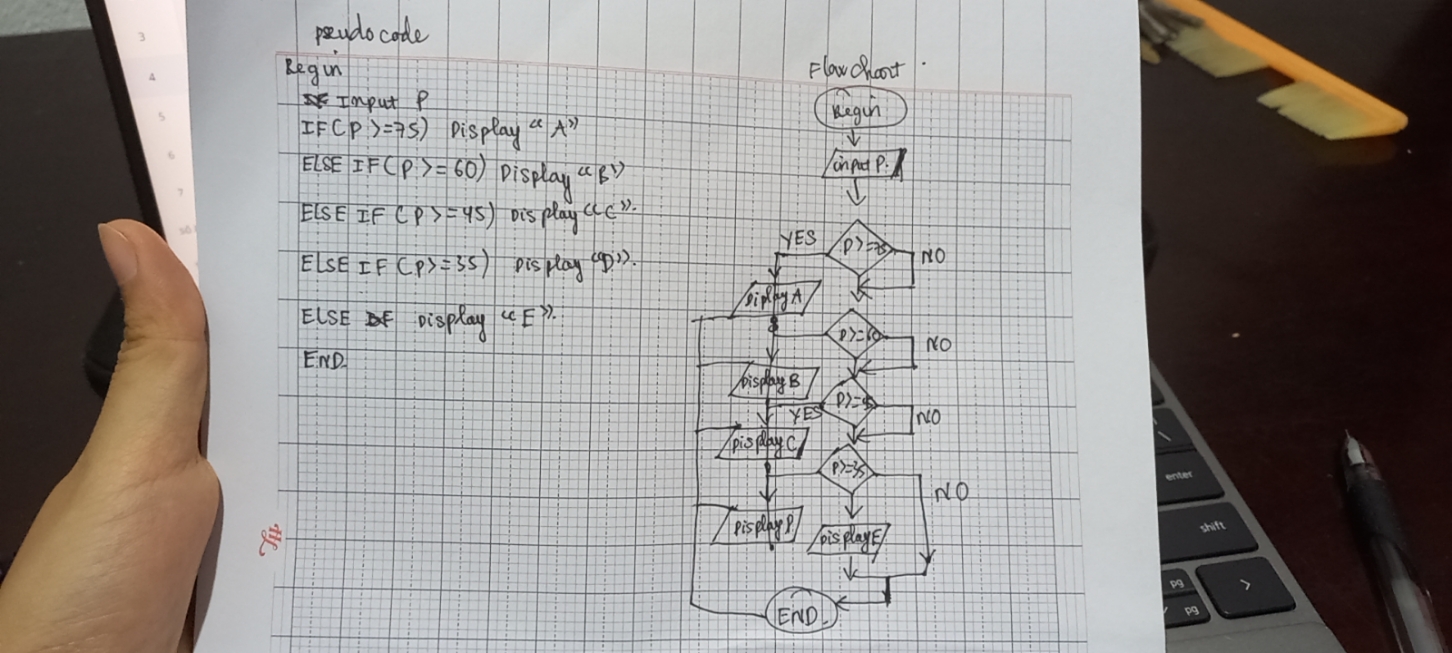 pseudocode
Begin
Input P
IF(P >=75) Display “A”
ELSE IF(P >=60) Display “B”
ELSE IF (P>=45) Display “C”.
ELSE IF (P>=35) Display “D”.
ELSE Display “E”.
END.
Flowchart.
Begin
input P.
P>=75
YES
NO
Diplay A
P>=60
NO
Display B
P>=45
YES
NO
Display C
P>=35
NO
Display
Display E
END.
3
4
5
6
7
enter
shift
pg
pg
>